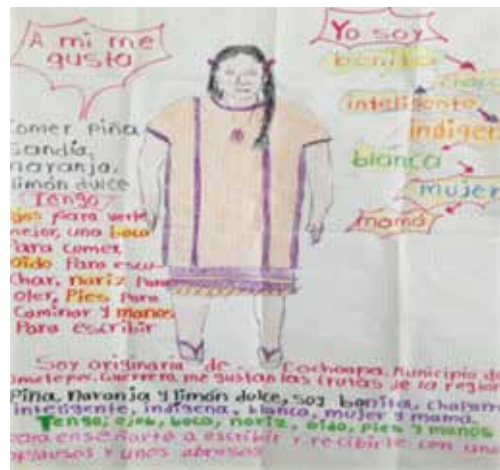 A mi me
gusta
comer piña
sandía,
naranja,
limón dulce
Tengo
ojos para verte
mejor, una boca
Para comer
oido Para escu-
char, nariz para
oler, Pies Para
Caminar y manos
Para escribir
Yo soy
bonita
chapa
inteligente
indigen
blanca
mujer
mamá
Soy originaria de Cochoapa. Municipio de
Ometepec. Guerrero, me gustan las frutas de la región
Piña, Naranja y limón dulce, soy bonita, chapa
inteligente, indigena, blanca, mujer y mamá.
Tengo; ojos, boca, nariz, oido, pies y manos
para enseñarte a escribir y recibirte con unos
aplausos y unos abrazos